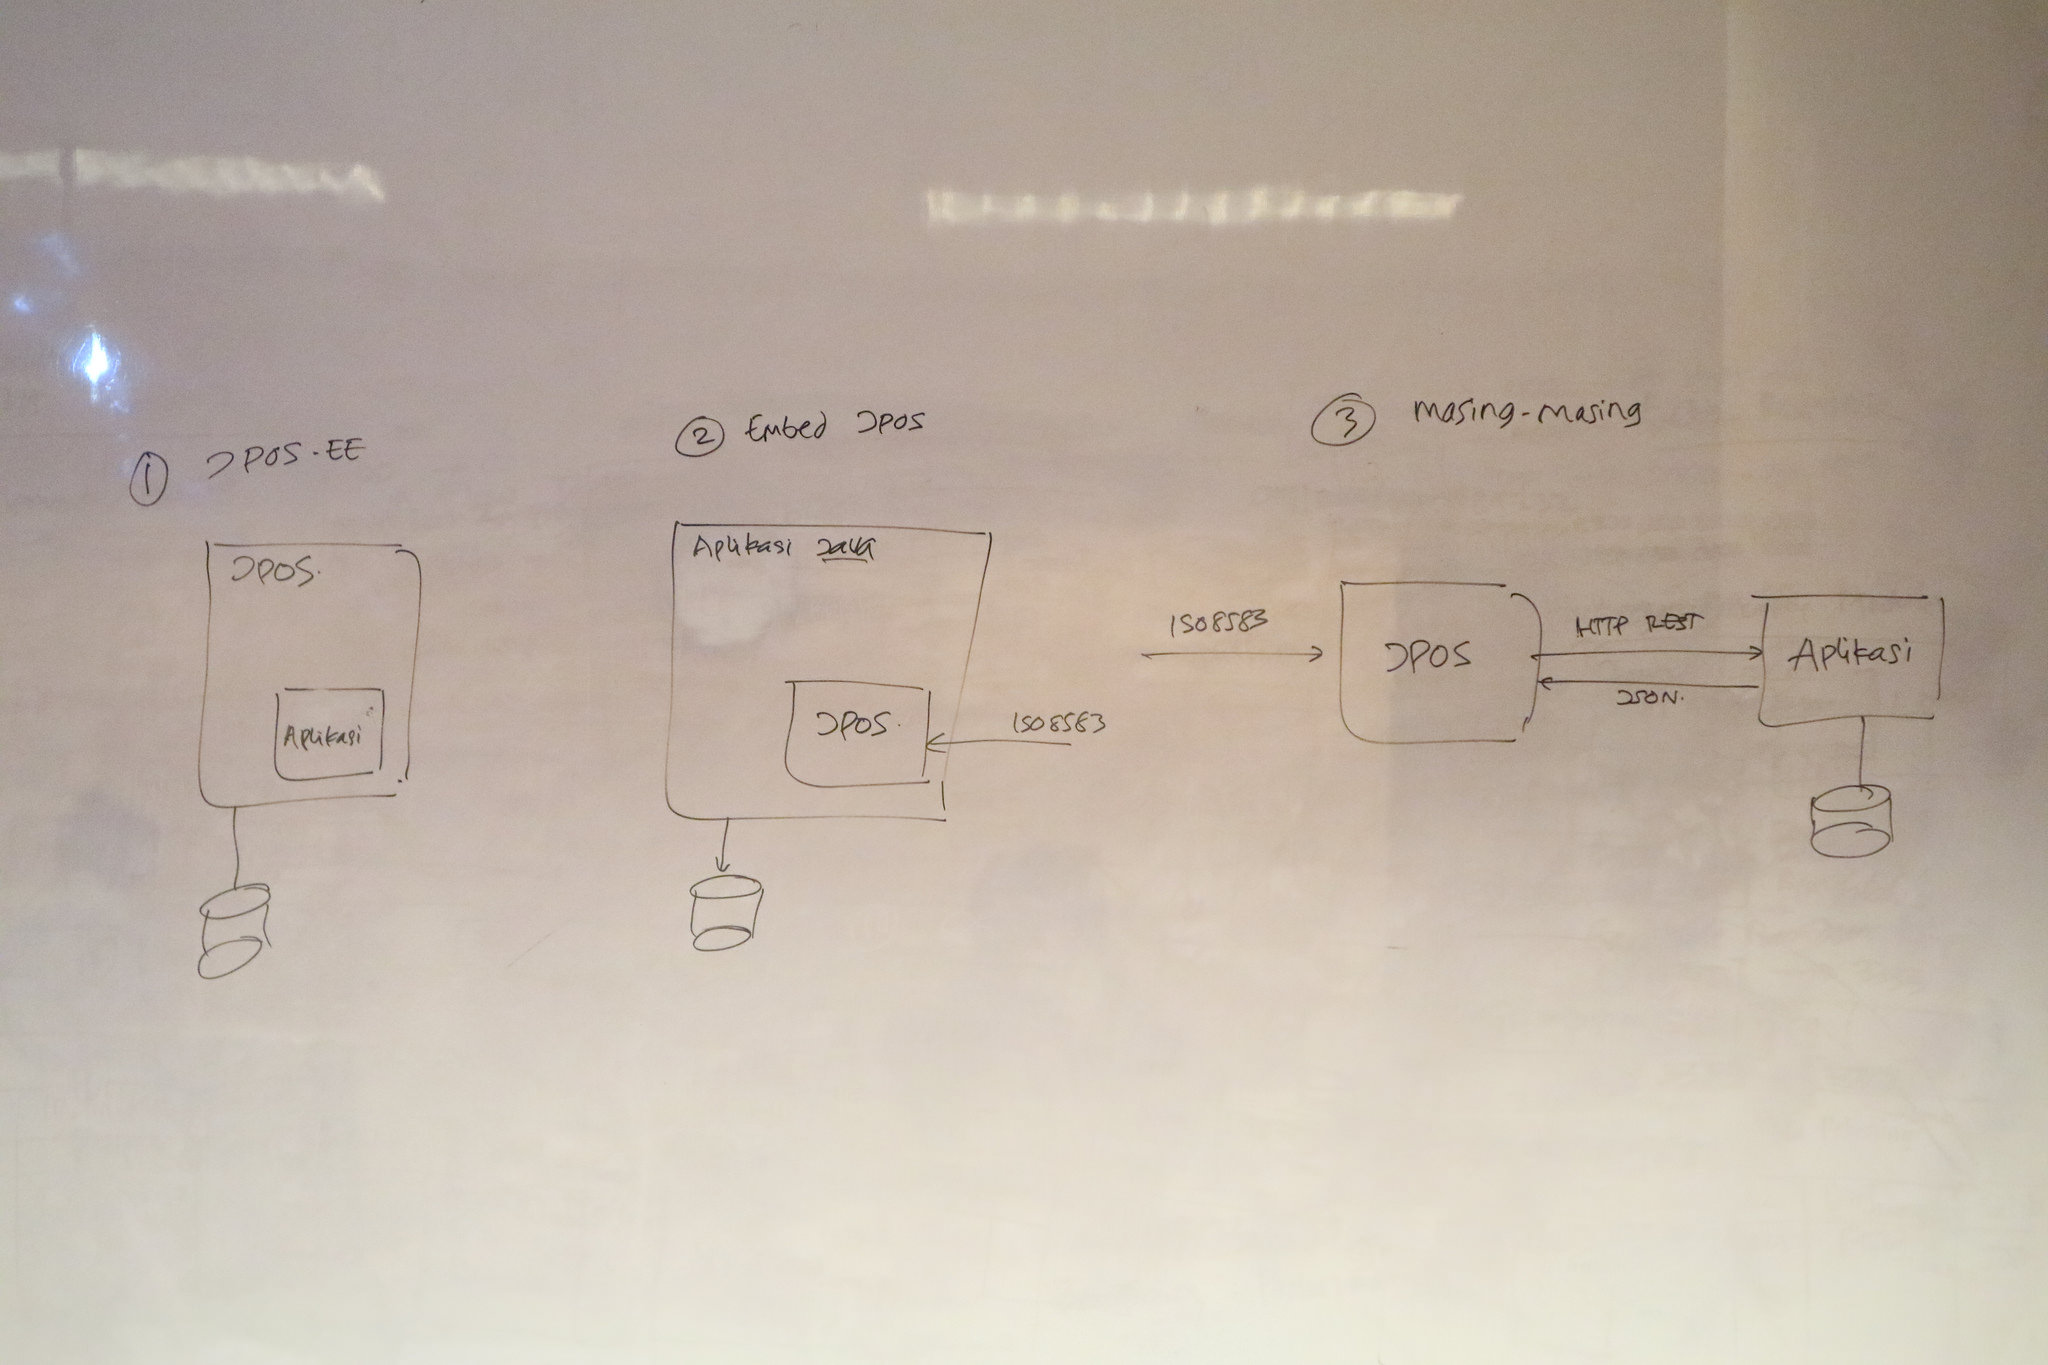 ① JPOS-EE
JPOS.
Aplikasi
② Embed JPOS
Aplikasi Java
JPOS.
ISO8583
③ masing-masing
ISO8583
JPOS
HTTP REST
JSON.
Aplikasi